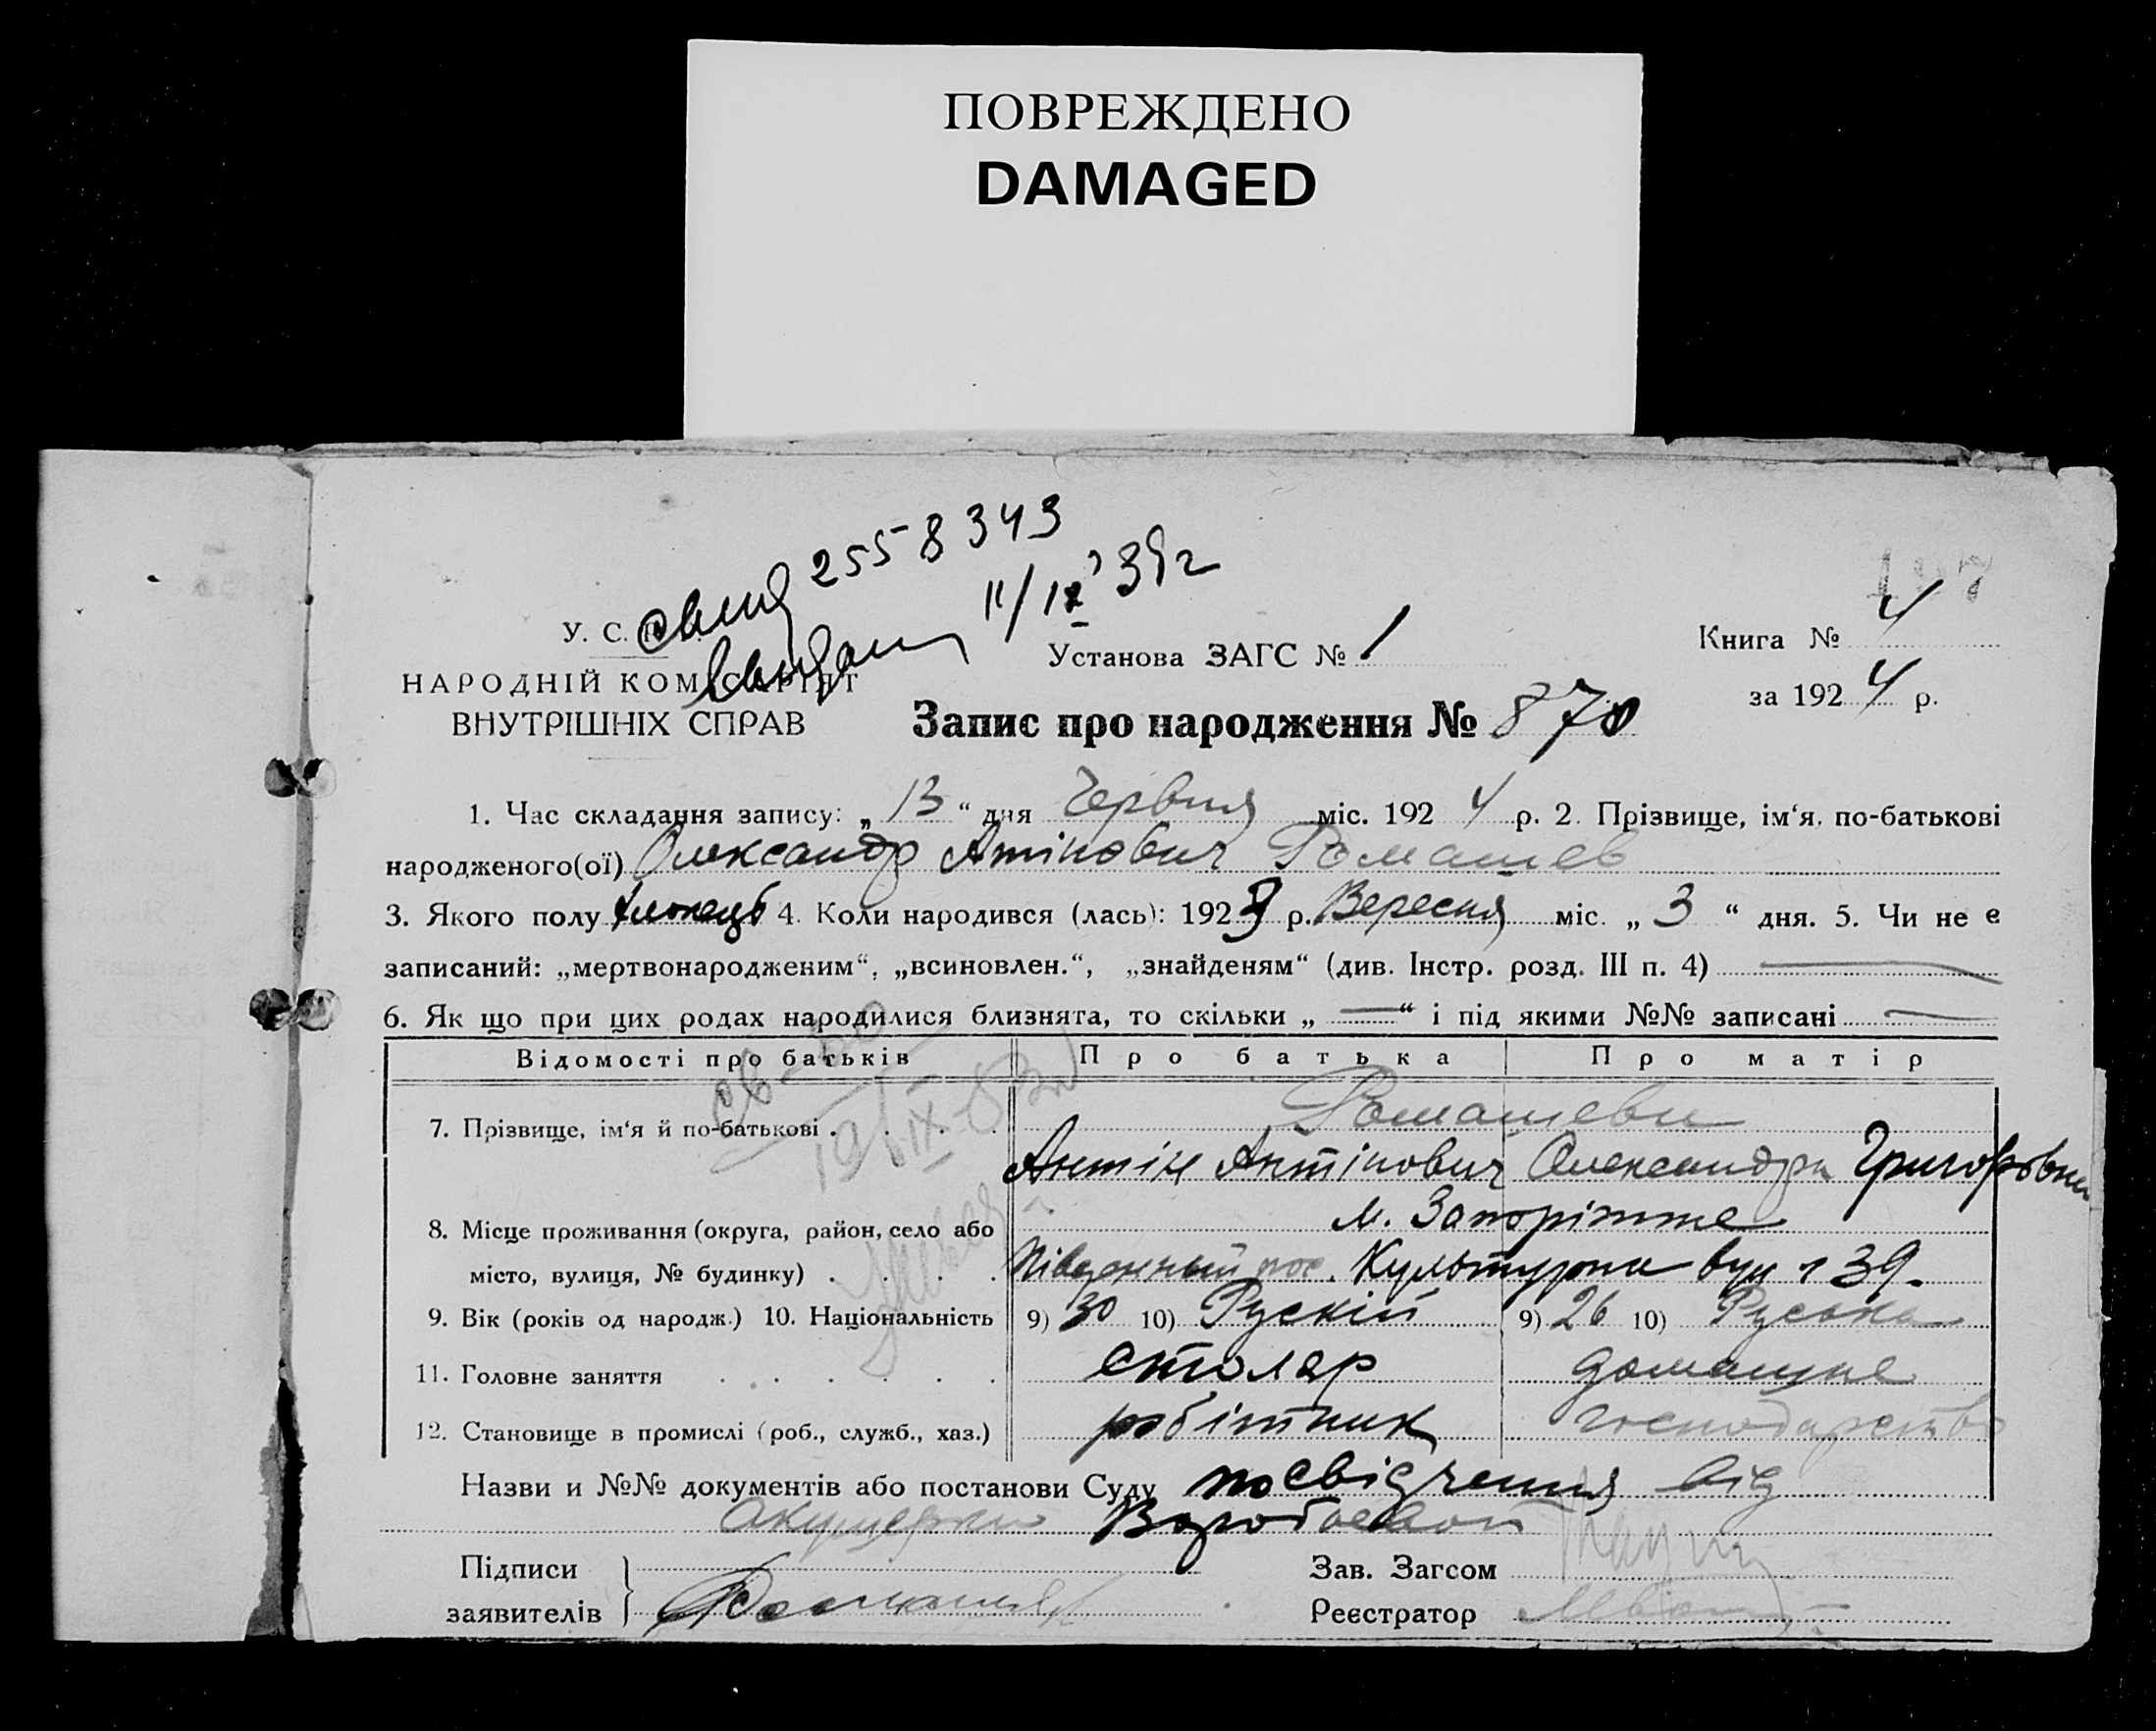 ПОВРЕЖДЕНО
DAMAGED
2558343
11/12 39 г
У. С.
НАРОДНІЙ КОМІСАРІЯТ
ВНУТРІШНІХ СПРАВ
Установа ЗАГС № 1
Книга № 4
за 1924 р.
Запис про народження № 870
1. Час складання запису: „ 13 “ дня Червня міс. 192 4 р. 2. Прізвище, ім‘я, по-батькові
народженого(ої) Олександр Антінович Ромашев
3. Якого полу Хлопець 4. Коли народився (лась): 192 р. Вересня міс. „ 3 “ дня. 5. Чи не є
записаний: „мертвонародженим“, „всиновлен.“, „знайденям“ (див. Інстр. розд. III п. 4)
6. Як що при цих родах народилися близнята, то скільки „ — “ і під якими №№ записані —
Відомості про батьків Про батька Про матір
Ромашеви
7. Прізвище, ім‘я й по-батькові . . . . Антін Антінович Олександра Григоровна
м. Запоріжже
8. Місце проживання (округа, район, село або
місто, вулиця, № будинку) . . . . Південный пос. Культурна вул 39.
9. Вік (років од народж.) 10. Національність 9) 30 10) Рускій 9) 26 10) Руська
11. Головне заняття . . . . . . столяр домашне
12. Становище в промислі (роб., служб., хаз.) робітник господарство
Назви и №№ документів або постанови Суду посвідчення від
акушерки Воробьевой
Підписи
заявителів
Зав. Загсом
Реєстратор